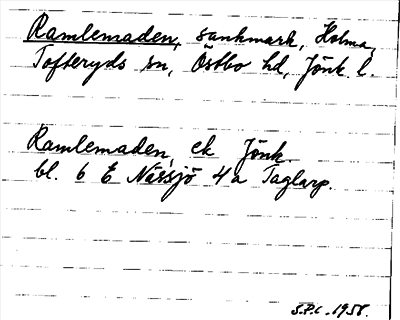 Ramlemaden, sankmark, Holma,
Tofteryds sn, Östbo hd, Jönk. l.
Ramlemaden, ek Jönk.
bl. 6 E Nässjö 4a Taglarp.
S.P.L. 1958.